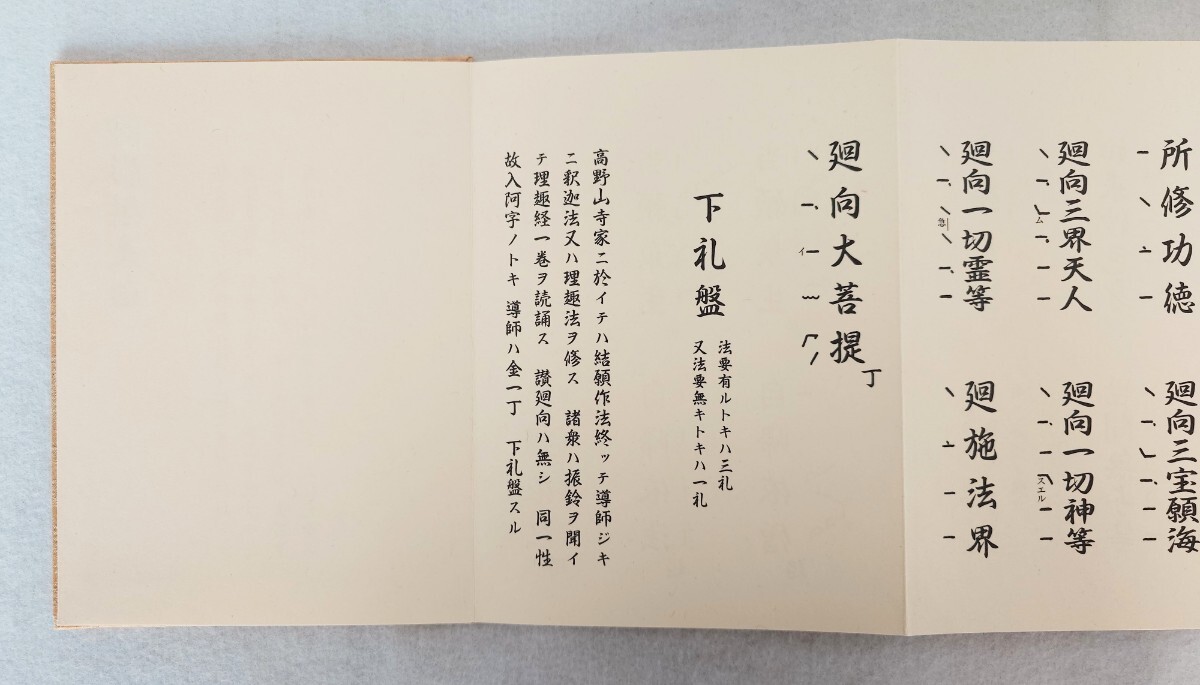 所修功徳
廻向三宝願海
廻向三界天人
ム
廻向一切神等
スエル
廻向一切霊等
急
廻施法界
廻向大菩提
丁
イ
下礼盤
法要有ルトキハ三礼
又法要無キトキハ一礼
高野山寺家ニ於イテハ結願作法終ッテ導師ジキ
ニ釈迦法又ハ理趣法ヲ修ス 諸衆ハ振鈴ヲ聞イ
テ理趣経一巻ヲ読誦ス 讃廻向ハ無シ 同一性
故入阿字ノトキ 導師ハ金一丁 下礼盤スル